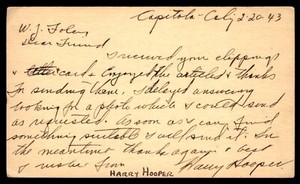 Capitola - Calif 2-20-43
W. J. Foley
Dear Friend
I received your clippings
& card & enjoyed the articles & thanks
for sending them, I delayed answering
looking for a photo which I could send
as requested. As soon as I can find
something suitable I will send it. In
the meantime thanks again & best
wishes from Harry Hooper
HARRY HOOPER